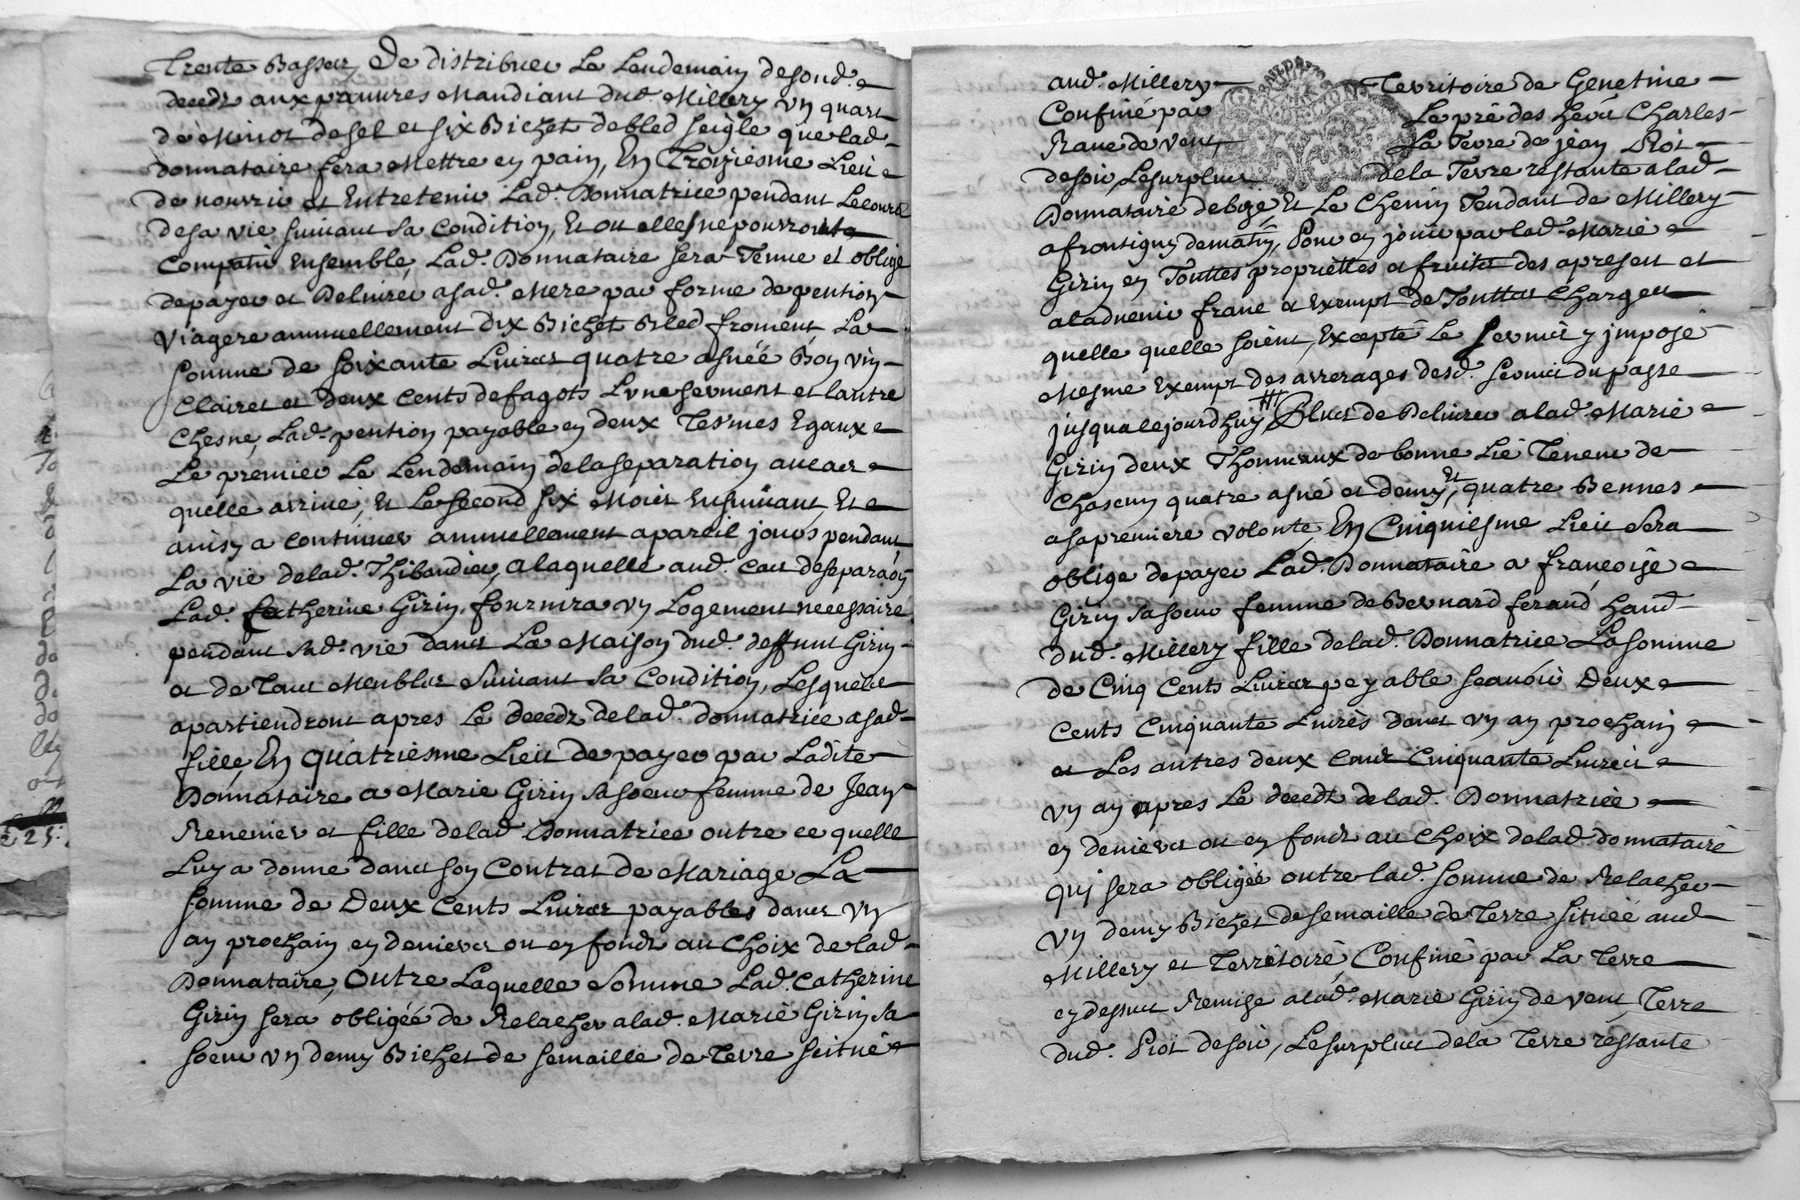 Trente Basses, De distribuer Le Lendemain desond.
decedz aux pauures Mandiant dud. Millery vn quart
de Minot desel et six Bichet debled seigle que lad.
donnataire fera Mettre en pain, En Troiziesme Lieu
de nourrir et Entretenir Lad. Donnatrice pendant Lecours
desa vie suiuant sa Condition, Et ou elles ne pourroient
Compatir Ensemble, Lad. Donnataire sera Tenue et oblige
depayer et Deliurer asad. Mere par forme de pention
Viagere annuellement dix Bichet Bled froment, La
somme de soixante Liures quatre asnéé Bon vin
Clairet et deux Cents defagots Lvne serment et lautre
Chesne, Lad. pention payable en deux Termes Egaux
Le premier Le Lendemain delaseparation aucas
quelle arriue, Et Lesecond six Mois Ensuiuant, Et
ainsy a Continuer annuellement apareil jours pendant
La vie delad. Thibaudier, alaquelle aud. Cas deseparaon
Lad. Catherine Girin fournira vn Logement necessaire
pendant sad. vie dans La Maison dud. deffunt Girin
et de Tous Meubles Suiuant sa Condition, Lesquels
apartiendront apres Le decedz delad. donnatrice asad.
fille, En quatriesme Lieu de payer par Ladite
Donnataire a Marie Girin sa soeur femme de Jean
Renenier et fille delad. Donnatrice outre ce quelle
Luy a donne dans son Contrat de Mariage La
somme de Deux Cents Liures payables dans Vn
an prochain en deniers ou en fondz au Choix de lad.
Donnataire, outre Laquelle Somme Lad. Catherine
Girin sera obligéé de Relacher alad. Marie Girin sa
soeur vn demy Bichet de semaille de Terre scitué
aud. Millery Territoire de Genetine
Confiné par Le pré des heu Charles
Raue de vent La Terre de jean Piot
desoir, Lesurplus dela Terre restante alad.
Donnataire debize Et Le Chemin Tendant de Millery
afrontigny dematin, Pour en jouir par lad. Marie
Girin en Touttes propriettes et fruits des apresent et
aladuenir franc et Exempt de Touttes Charges
quelle quelle soient, Excepté Le seruis y jmposé
Mesme Exempt des arrerages desd. seruis du passe
jusqualejourdhuy, Plus de Deliurer a lad. Marie
Girin deux Thonneaux de bonne Lie Teneur de
Chascun quatre asné et demy, et quatre Bennes
asapremiere volonte, En Cinquiesme Lieu Sera
oblige depayer Lad. Donnataire a francoise
Girin sa soeur femme de Bernard feraud hand.
dud. Millery fille delad. Donnatrice La somme
de Cinq Cents Liures peyable scauoir Deux
Cents Cinquante Liures dans vn an prochain
et Les autres deux Cents Cinquante Liures
vn an apres Le decedz delad. Donnatrice
en deniers ou en fondz au Choix delad. donnataire
quj sera obligéé outre lad. somme de Relacher
vn demy Bichet desemaille de Terre situéé aud
Millery et Territoire, Confiné par La Terre
cydessus Remise alad. Marie Girin de vent, Terre
dud. Piot desoir, Lesurplus dela Terre restante